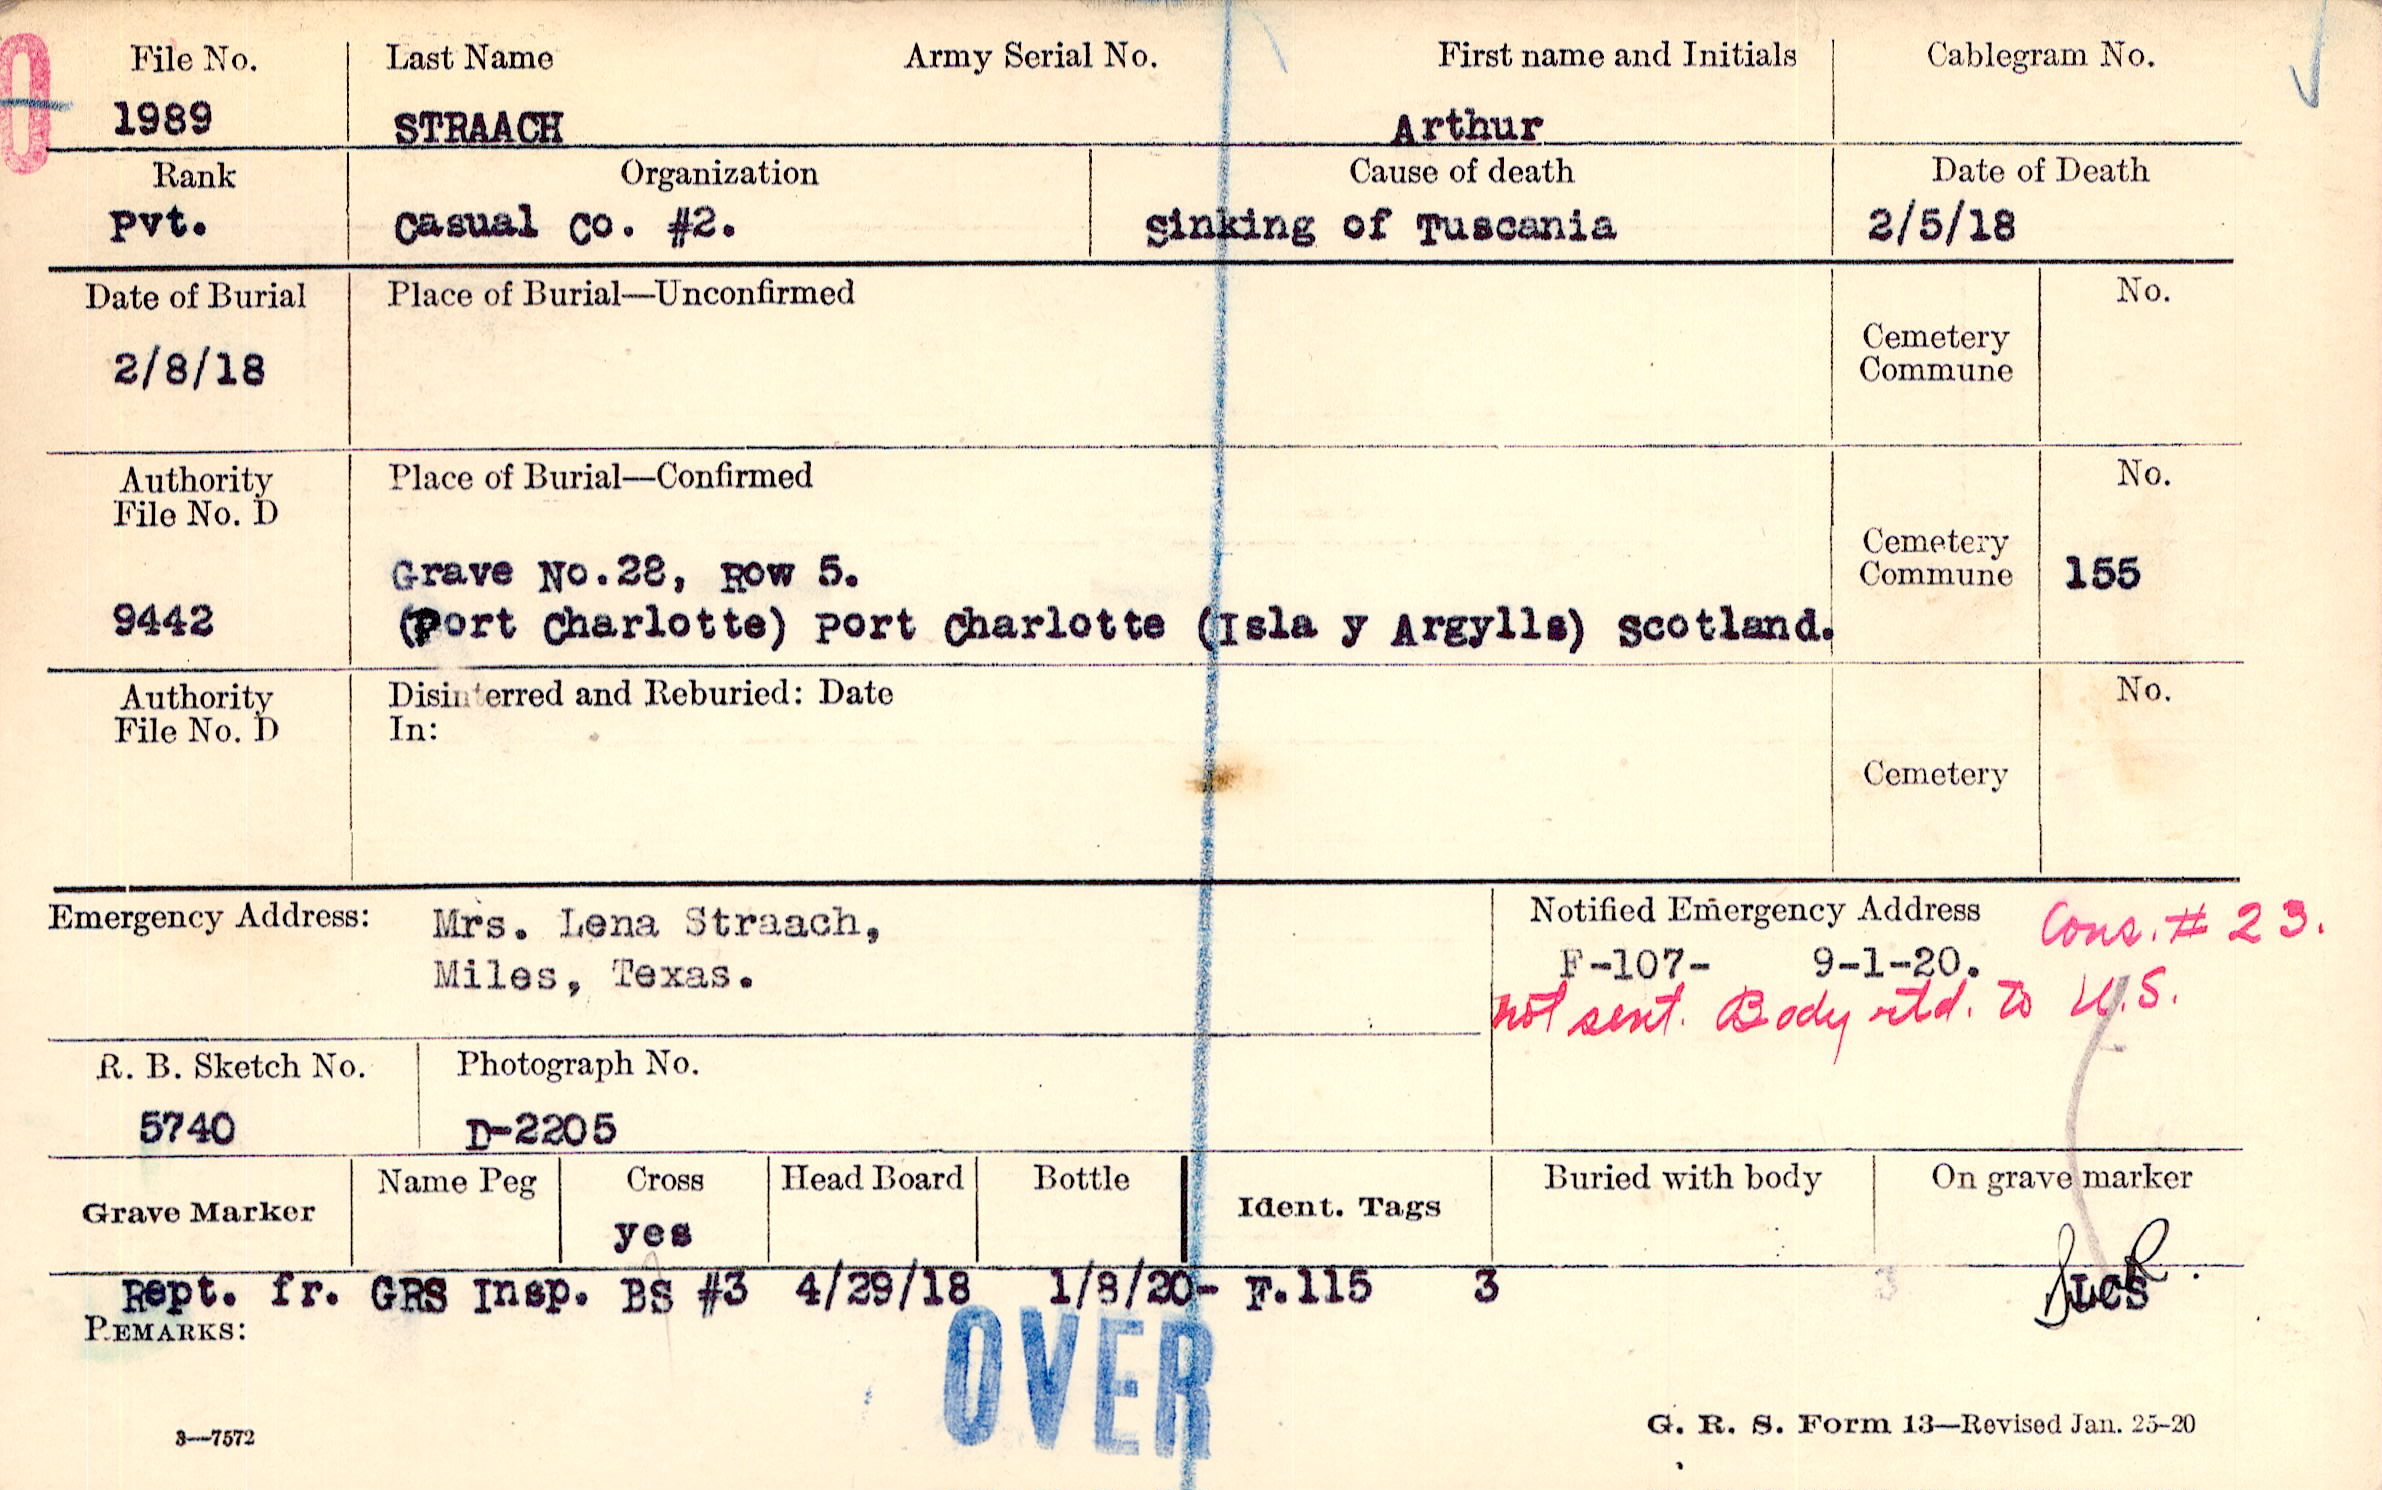 File No. Last Name Army Serial No. First name and Initials Cablegram No.
1989 STRAACH Arthur
Rank Organization Cause of death Date of Death
Pvt. Casual Co. #2. Sinking of Tuscania 2/5/18
Date of Burial Place of Burial—Unconfirmed No.
2/8/18
Cemetery
Commune
Authority Place of Burial—Confirmed No.
File No. D
Grave No.28, Row 5.
Cemetery
Commune 155
9442 (Port Charlotte) Port Charlotte (Isla y Argylls) Scotland.
Authority Disinterred and Reburied: Date No.
File No. D In:
Cemetery
Emergency Address: Mrs. Lena Straach,
Miles, Texas.
Notified Emergency Address Cons. # 23.
F-107- 9-1-20.
not sent. Body rtd. to U.S.
R. B. Sketch No. Photograph No.
5740 D-2205
Grave Marker Name Peg Cross Head Board Bottle Ident. Tags Buried with body On grave marker
yes
Rept. fr. GRS Insp. BS #3 4/29/18 1/8/20- F.115 3 3 LCS
REMARKS:
OVER
3—7572 G. R. S. Form 13—Revised Jan. 25-20